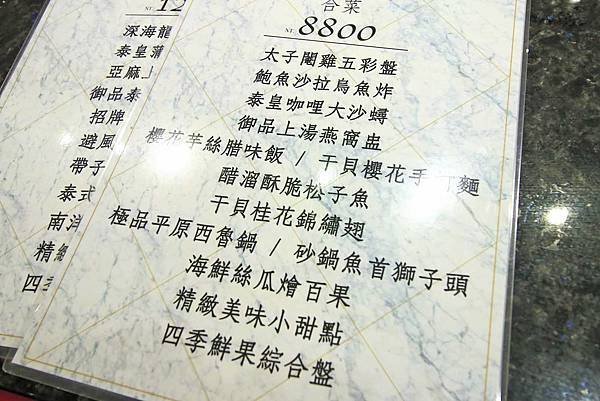 合菜
NT. 8800
太子閹雞五彩盤
鮑魚沙拉烏魚炸
泰皇咖哩大沙蟳
御品上湯燕窩盅
櫻花芋絲腊味飯 / 干貝櫻花手 麵
醋溜酥脆松子魚
干貝桂花錦繡翅
極品平原西魯鍋 / 砂鍋魚首獅子頭
海鮮絲瓜燴百果
精緻美味小甜點
四季鮮果綜合盤
NT. 12
深海龍
泰皇蒲
亞麻上
御品泰
招牌
避風
帶子
泰式
南洋
精緻
四季